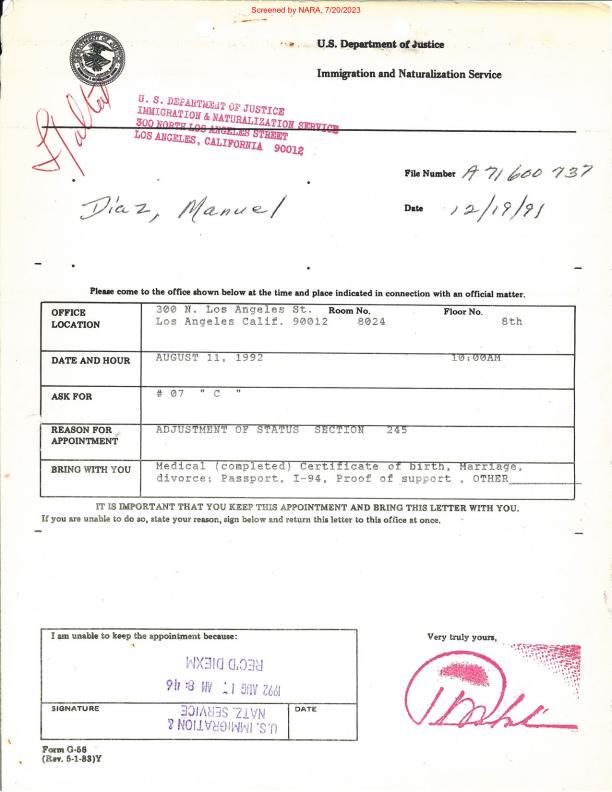 Screened by NARA, 7/20/2023
U.S. Department of Justice
Immigration and Naturalization Service
U. S. DEPARTMENT OF JUSTICE
IMMIGRATION & NATURALIZATION SERVICE
300 NORTH LOS ANGELES STREET
LOS ANGELES, CALIFORNIA 90012
File Number A 71 600 737
Diaz, Manuel
Date 12/19/91
Please come to the office shown below at the time and place indicated in connection with an official matter.
OFFICE LOCATION
300 N. Los Angeles St. Room No. Floor No.
Los Angeles Calif. 90012 8024 8th
DATE AND HOUR AUGUST 11, 1992 10:00AM
ASK FOR # 07 " C "
REASON FOR APPOINTMENT ADJUSTMENT OF STATUS SECTION 245
BRING WITH YOU Medical (completed) Certificate of birth, Marriage,
divorce; Passport, I-94, Proof of support , OTHER
IT IS IMPORTANT THAT YOU KEEP THIS APPOINTMENT AND BRING THIS LETTER WITH YOU.
If you are unable to do so, state your reason, sign below and return this letter to this office at once.
I am unable to keep the appointment because:
Very truly yours,
U.S. IMMIGRATION &
NATZ. SERVICE
1992 AUG 17 AM 8:46
REC'D DIEXM
SIGNATURE DATE
Form G-56
(Rev. 5-1-83)Y